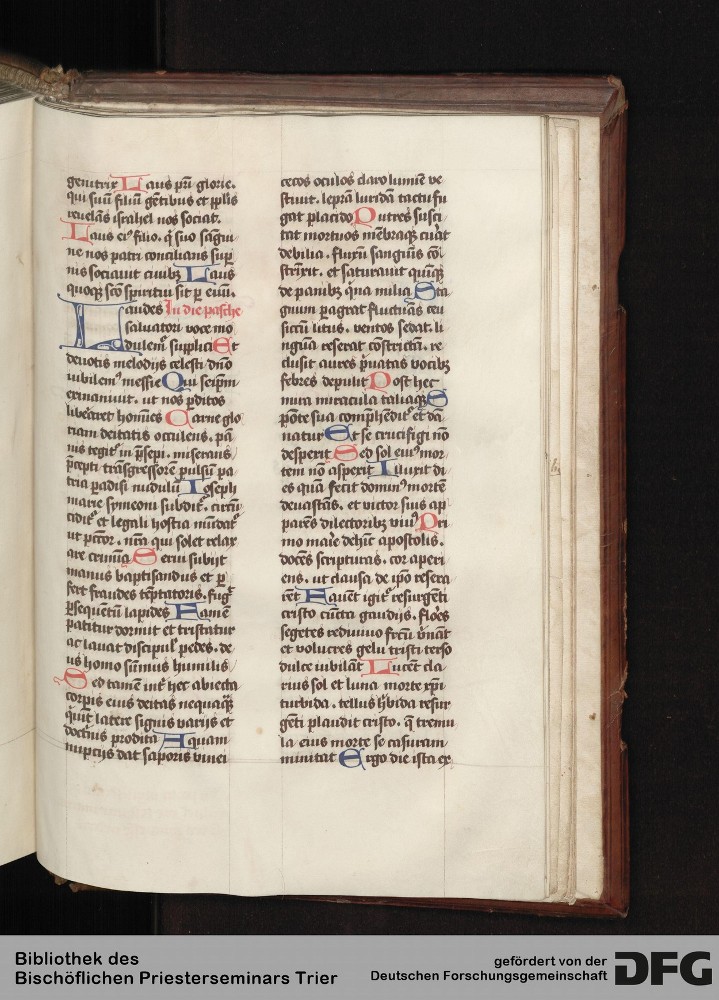 genitrix Laus pr̄i glorie.
qui suū filiū gētibus et pplis
reuelās israhel nos sociat.
Laus ei᷒ filio. q̄ suo sāgui
ne nos patri concilians sup̄
nis sociauit ciuibꝫ Laus
quoqꝫ sc̄o spiritui sit p̲ euū.
Laudes In die pasche
saluatori voce mo
dulem᷒ supplici Et
deuotis melodijs celesti dn̄o
iubilem᷒ messie Qui seip̄m
exinaniuit. ut nos p̲ditos
liberaret homīes Carne glo
riam deitatis occulens. pā
nis tegit᷑ in p̄sepi. miserans
p̄cepti trāsgressorē pulsū pa
tria padisi nudulū Ioseph
marie symeoni subdit᷑. circū
cidit᷑ et legali hostia mūdat᷑
ut pctor. nr̄a qui solet relax
are crimīa Serui subijt
manus baptisandus et p̲
fert fraudes tēptatoris. fug᷑
p̲sequētū lapides Famē
patitur dormit et tristatur
ac lauat discipul᷒ pedes. de
us homo sūmus humilis
Sed tamē int᷑ hec abiecta
corp̲is eius deitas nequaq̄ꝫ
q̄uit latere signis varijs et
doctͥnis prodita Aquam
nuptijs dat saporis vinei
cecos oculos claro lumīe ve
stiuit. leprā luridā tactu fu
gat placido Putres susci
tat mortuos mēbraqꝫ curat
debilia. fluxū sanguīs cō
strīxit. et saturauit quīqꝫ
de panibꝫ q̄na milia Sta
gnum pagrat fluctuās ceu
siccū litus. ventos sedat. li
nguā reserat cōstrictā. re
clusit aures p̄uatas vocibꝫ
febres depulit Post hec
mira miracula taliaqꝫ S
pōte sua comp̄hēdit᷑ et dā
natur Et se crucifigi nō
despexit Sed sol ei᷒ mor
tem nō aspexit Illuxit di
es quā fecit domin᷒ mortē
deuastās. et victor suis ap
parēs dilectoribꝫ viu᷒ Pri
mo marie dehīc apostolis.
docēs scripturas. cor aperi
ens. ut clausa de ip̄o resera
rēt Fauēt igit᷑ resurgēti
cristo cūcta gaudijs. flores
segetes rediuiuo frc̄u v̄nāt
et volucres gelu tristi terso
dulce iubilāt Lucēt cla
rius sol et luna morte xp̄i
turbida. tellus h̄bida resur
gēti plaudit cristo. q̄ tremu
la eius morte se casuram
minitat Ergo die ista ex
Bibliothek des
Bischöflichen Priesterseminars Trier
gefördert von der
Deutschen Forschungsgemeinschaft
DFG